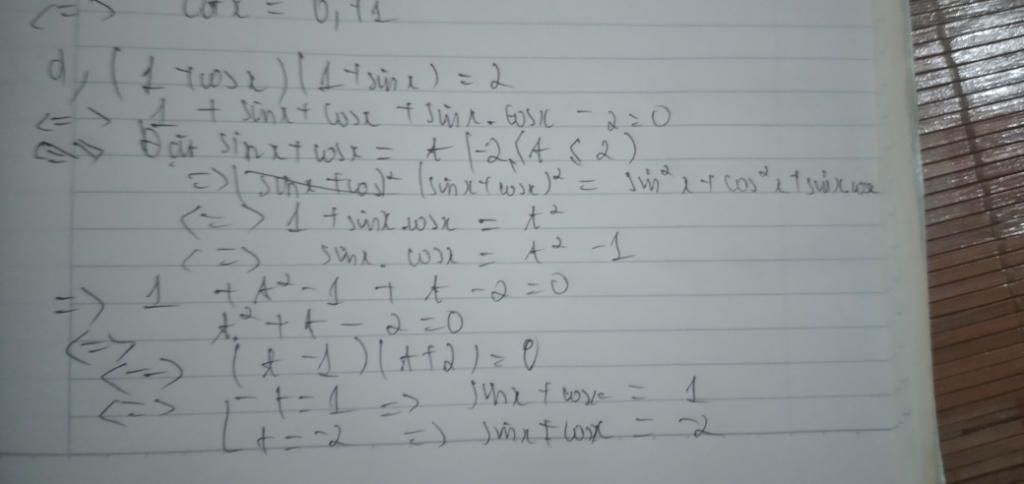 <=> cosx = 0,71
d, (1 + cosx)(1 + sinx) = 2
<=> 1 + sinx + cosx + sinx.cosx - 2 = 0
Đặt sinx + cosx = t (-2 ≤ t ≤ 2)
=> (sinx + cos)² (sinx + cosx)² = sin²x + cos²x + sinxcosx
<=> 1 + sinx.cosx = t²
<=> sinx. cosx = t² - 1
=> 1 + t² - 1 + t - 2 = 0
t² + t - 2 = 0
<=> (t - 1)(t + 2) = 0
<=> t = 1 => sinx + cosx = 1
t = -2 => sinx + cosx = -2